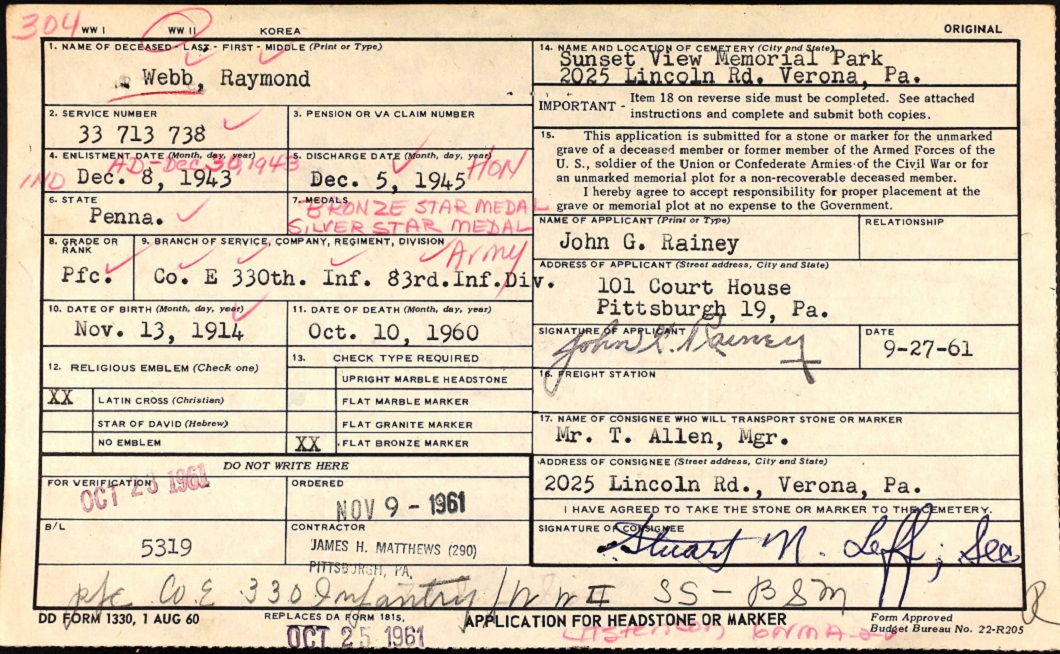 304 WW I WW II KOREA ORIGINAL
1. NAME OF DECEASED - LAST - FIRST - MIDDLE (Print or Type)
Webb, Raymond
2. SERVICE NUMBER
33 713 738
3. PENSION OR VA CLAIM NUMBER
4. ENLISTMENT DATE (Month, day, year)
AD-Dec 30, 1943
IND Dec. 8, 1943
5. DISCHARGE DATE (Month, day, year)
Dec. 5, 1945 HON
6. STATE
Penna.
7. MEDALS
BRONZE STAR MEDAL
SILVER STAR MEDAL
8. GRADE OR RANK
Pfc.
9. BRANCH OF SERVICE, COMPANY, REGIMENT, DIVISION
Army
Co. E 330th. Inf. 83rd.Inf.Div.
10. DATE OF BIRTH (Month, day, year)
Nov. 13, 1914
11. DATE OF DEATH (Month, day, year)
Oct. 10, 1960
12. RELIGIOUS EMBLEM (Check one)
XX LATIN CROSS (Christian)
STAR OF DAVID (Hebrew)
NO EMBLEM
13. CHECK TYPE REQUIRED
UPRIGHT MARBLE HEADSTONE
FLAT MARBLE MARKER
FLAT GRANITE MARKER
XX FLAT BRONZE MARKER
DO NOT WRITE HERE
FOR VERIFICATION
OCT 23 1961
ORDERED
NOV 9 - 1961
B/L
5319
CONTRACTOR
JAMES H. MATTHEWS (290)
PITTSBURGH, PA.
14. NAME AND LOCATION OF CEMETERY (City and State)
Sunset View Memorial Park
2025 Lincoln Rd. Verona, Pa.
IMPORTANT - Item 18 on reverse side must be completed. See attached
instructions and complete and submit both copies.
15. This application is submitted for a stone or marker for the unmarked
grave of a deceased member or former member of the Armed Forces of the
U. S., soldier of the Union or Confederate Armies of the Civil War or for
an unmarked memorial plot for a non-recoverable deceased member.
I hereby agree to accept responsibility for proper placement at the
grave or memorial plot at no expense to the Government.
NAME OF APPLICANT (Print or Type)
John G. Rainey
RELATIONSHIP
ADDRESS OF APPLICANT (Street address, City and State)
101 Court House
Pittsburgh 19, Pa.
SIGNATURE OF APPLICANT
John G. Rainey
DATE
9-27-61
16. FREIGHT STATION
17. NAME OF CONSIGNEE WHO WILL TRANSPORT STONE OR MARKER
Mr. T. Allen, Mgr.
ADDRESS OF CONSIGNEE (Street address, City and State)
2025 Lincoln Rd., Verona, Pa.
I HAVE AGREED TO TAKE THE STONE OR MARKER TO THE CEMETERY.
SIGNATURE OF CONSIGNEE
Stuart N. Leff, Sec
pfc Co E 330 Infantry / WW II SS - BSM
DD FORM 1330, 1 AUG 60
REPLACES DA FORM 1815,
OCT 25 1961
APPLICATION FOR HEADSTONE OR MARKER
Form Approved
Budget Bureau No. 22-R205